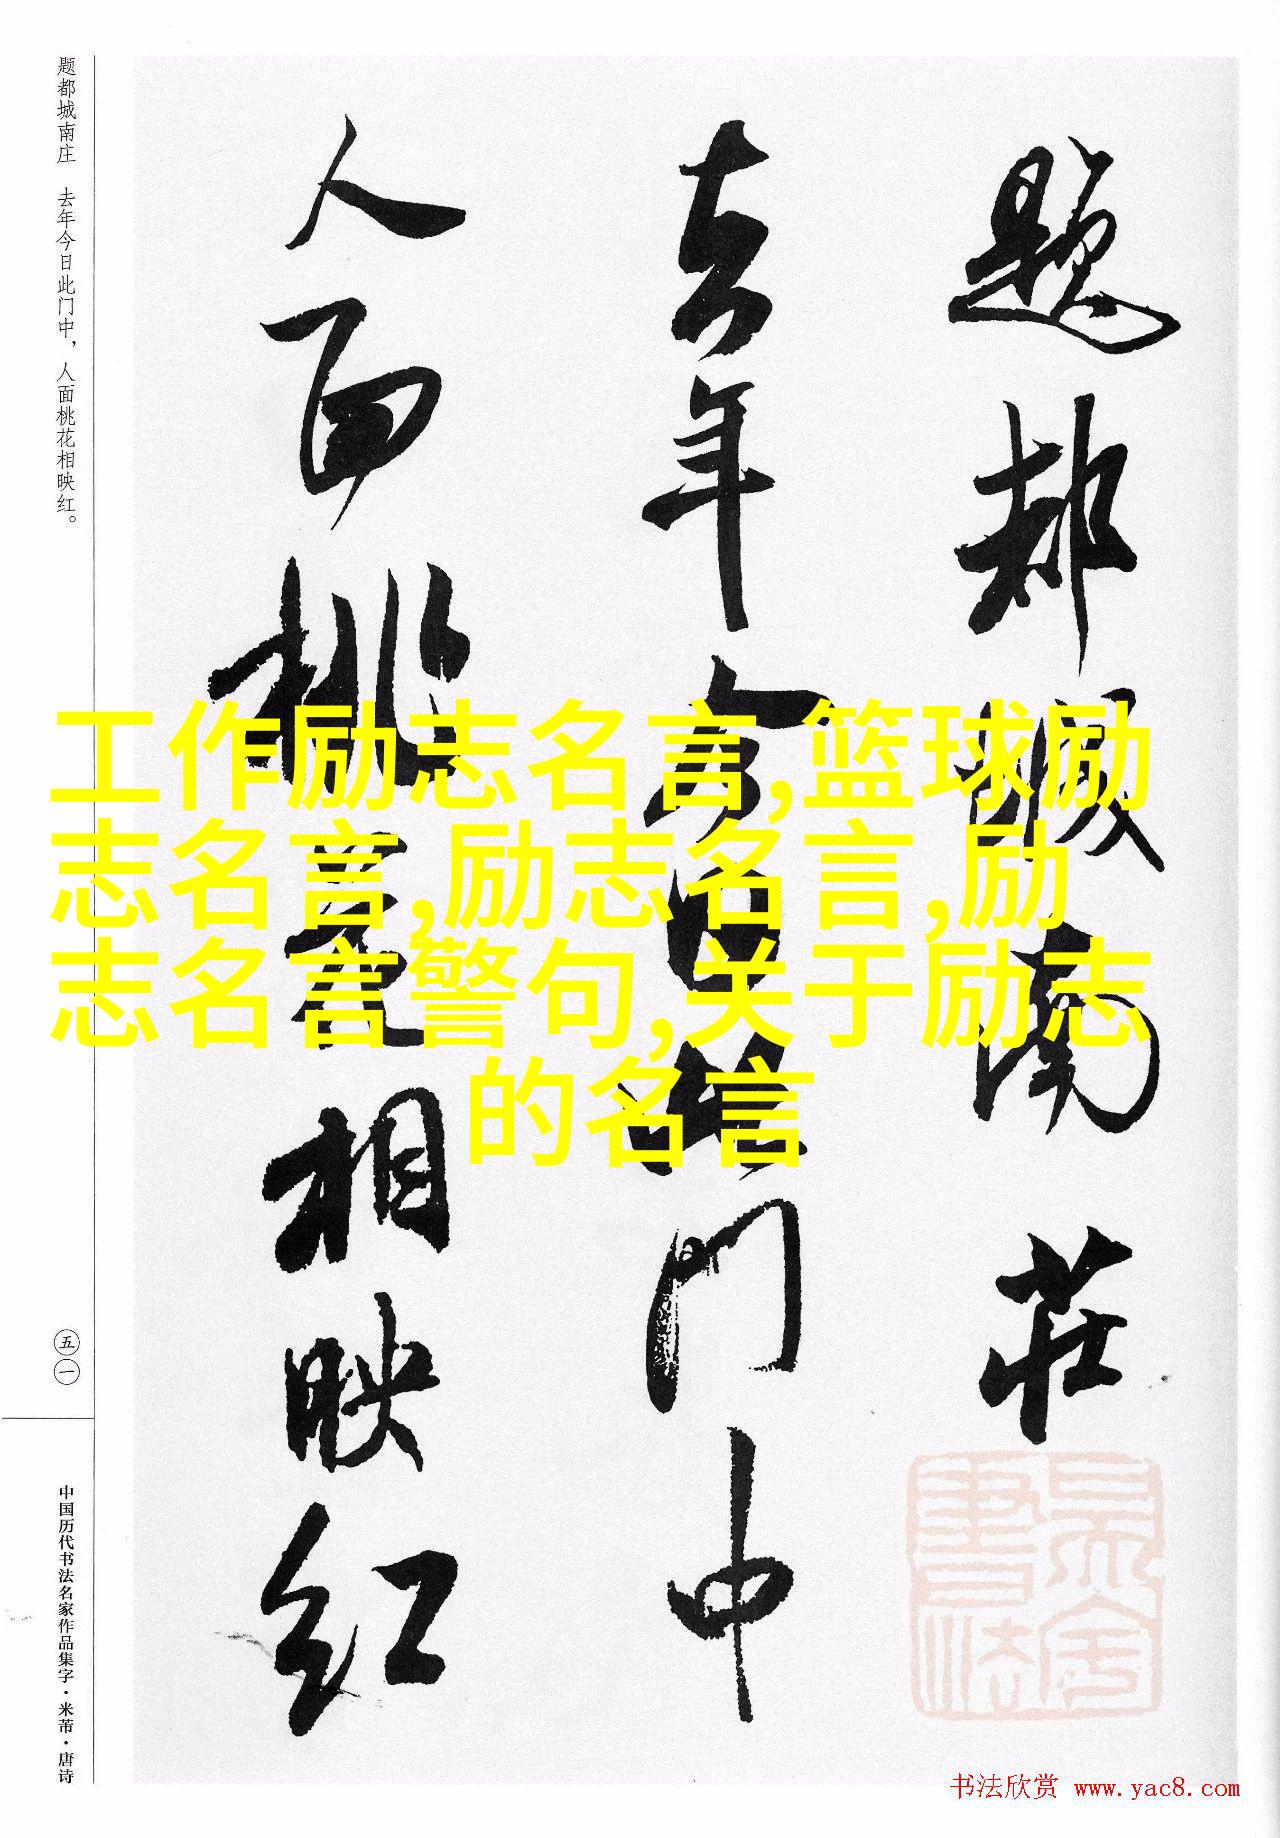 题都城南庄
去年今日此门中
人面桃花相映红
题都城南庄 去年今日此门中，人面桃花相映红。
五一
中国历代书法名家作品集字·米芾·唐诗
工作励志名言,篮球励
志名言,励志名言,励
志名言警句,关于励志
的名言
书法欣赏 www.yac8.com